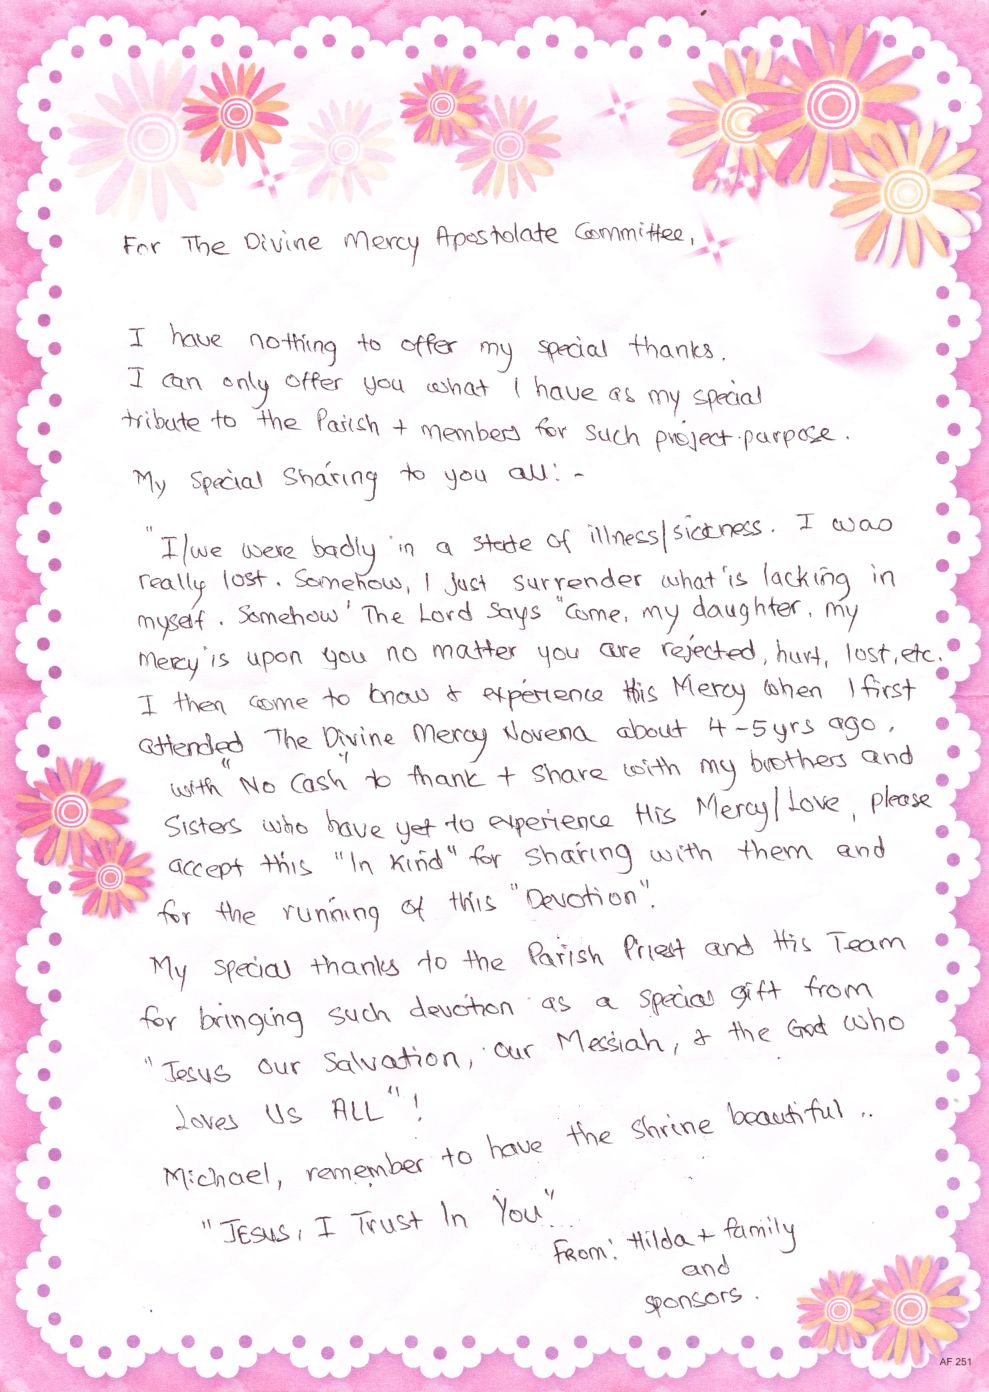 For The Divine Mercy Apostolate Committee,
I have nothing to offer my special thanks.
I can only offer you what I have as my special
tribute to the Parish + members for such project purpose.
My Special Sharing to you all: -
"I/we were badly in a state of illness/sickness. I was
really lost. Somehow, I just surrender what is lacking in
myself. Somehow 'The Lord Says "Come, my daughter, my
Mercy is upon you no matter you are rejected, hurt, lost, etc.
I then come to know & experience His Mercy when I first
attended The Divine Mercy Novena about 4-5yrs ago.
with "No Cash" to thank + share with my brothers and
Sisters who have yet to experience His Mercy/Love, please
accept this "In Kind" for sharing with them and
for the running of this "Devotion".
My special thanks to the Parish Priest and His Team
for bringing such devotion as a special gift from
"Jesus our Salvation, our Messiah, & the God who
Loves Us ALL"!
Michael, remember to have the shrine beautiful ..
"JESUS, I Trust In You"
From: Hilda + family
and
sponsors.
AF 251